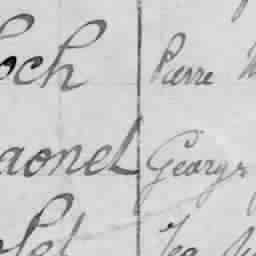 och Pierre
aonel Georges
olet Jea